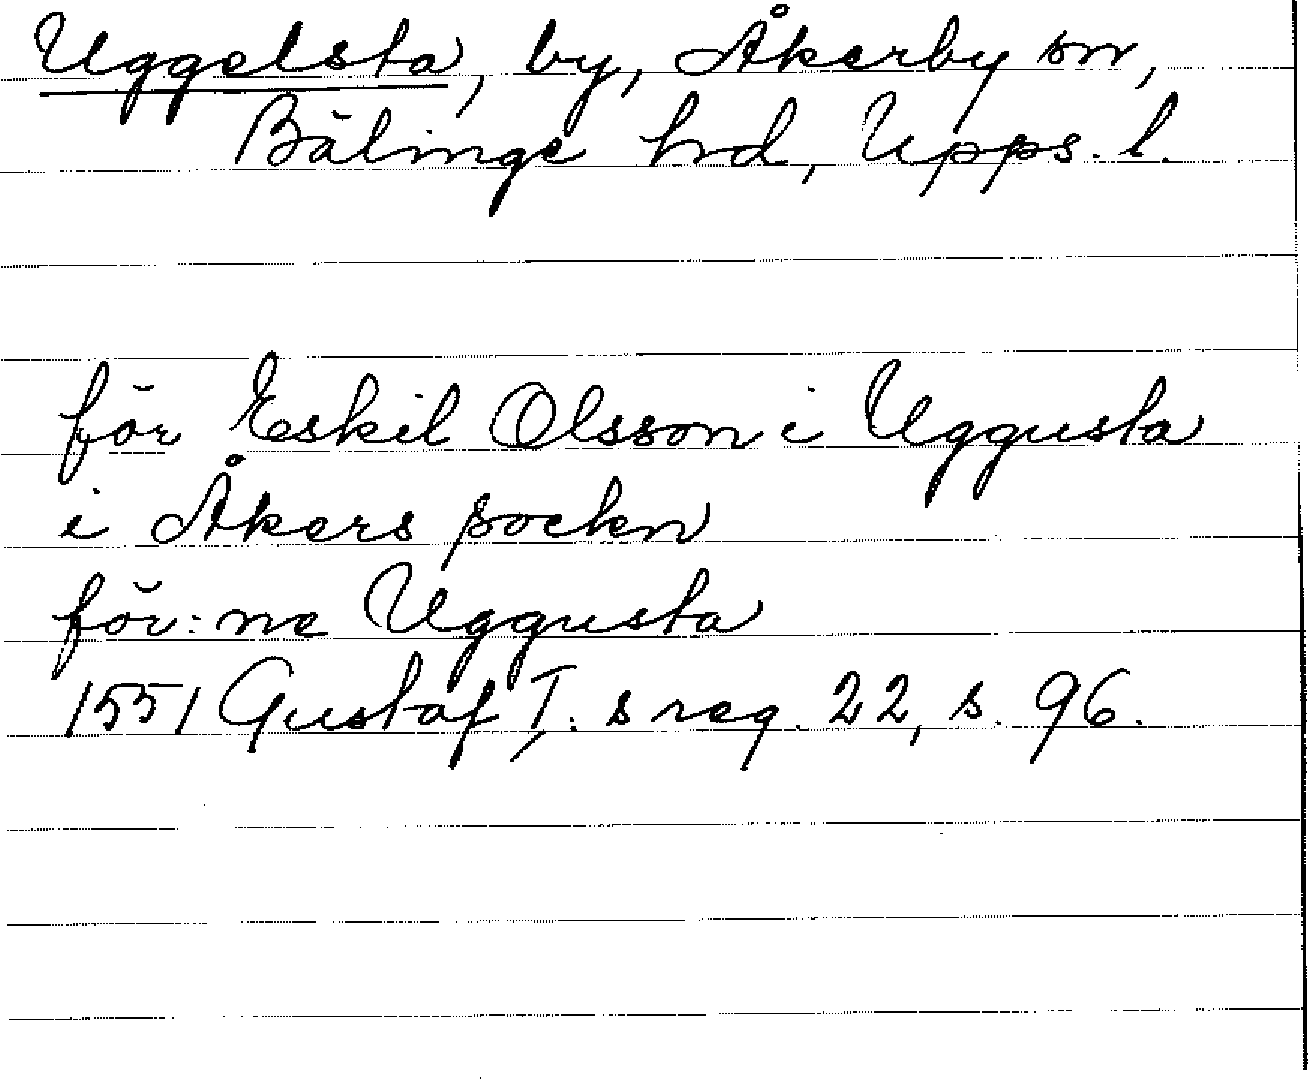 Uggelsta, by, Åkerby sn,
Bälinge hd, Upps. l.
för Eskil Olsson i Uggusta
i Åkers sockn
för:ne Uggusta
1551 Gustaf I:s reg. 22, s. 96.